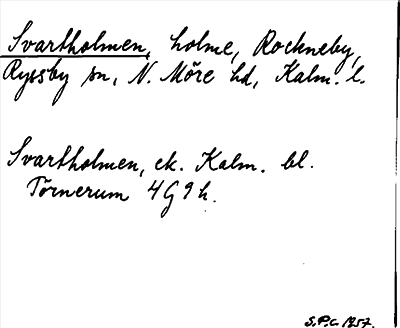 Svartholmen, holme, Rockneby,
Ryssby sn, N. Möre hd, Kalm. l.
Svartholmen, ek. Kalm. bl.
Törnerum 4G9h.
S.P.C. 1957.